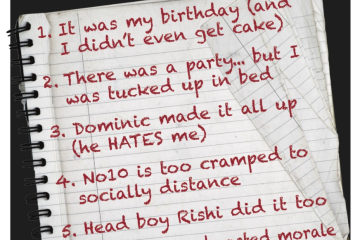 1. It was my birthday (and
I didn't even get cake)
2. There was a party... but I
was tucked up in bed
3. Dominic made it all up
(he HATES me)
4. No10 is too cramped to
socially distance
5. Head boy Rishi did it too
morale